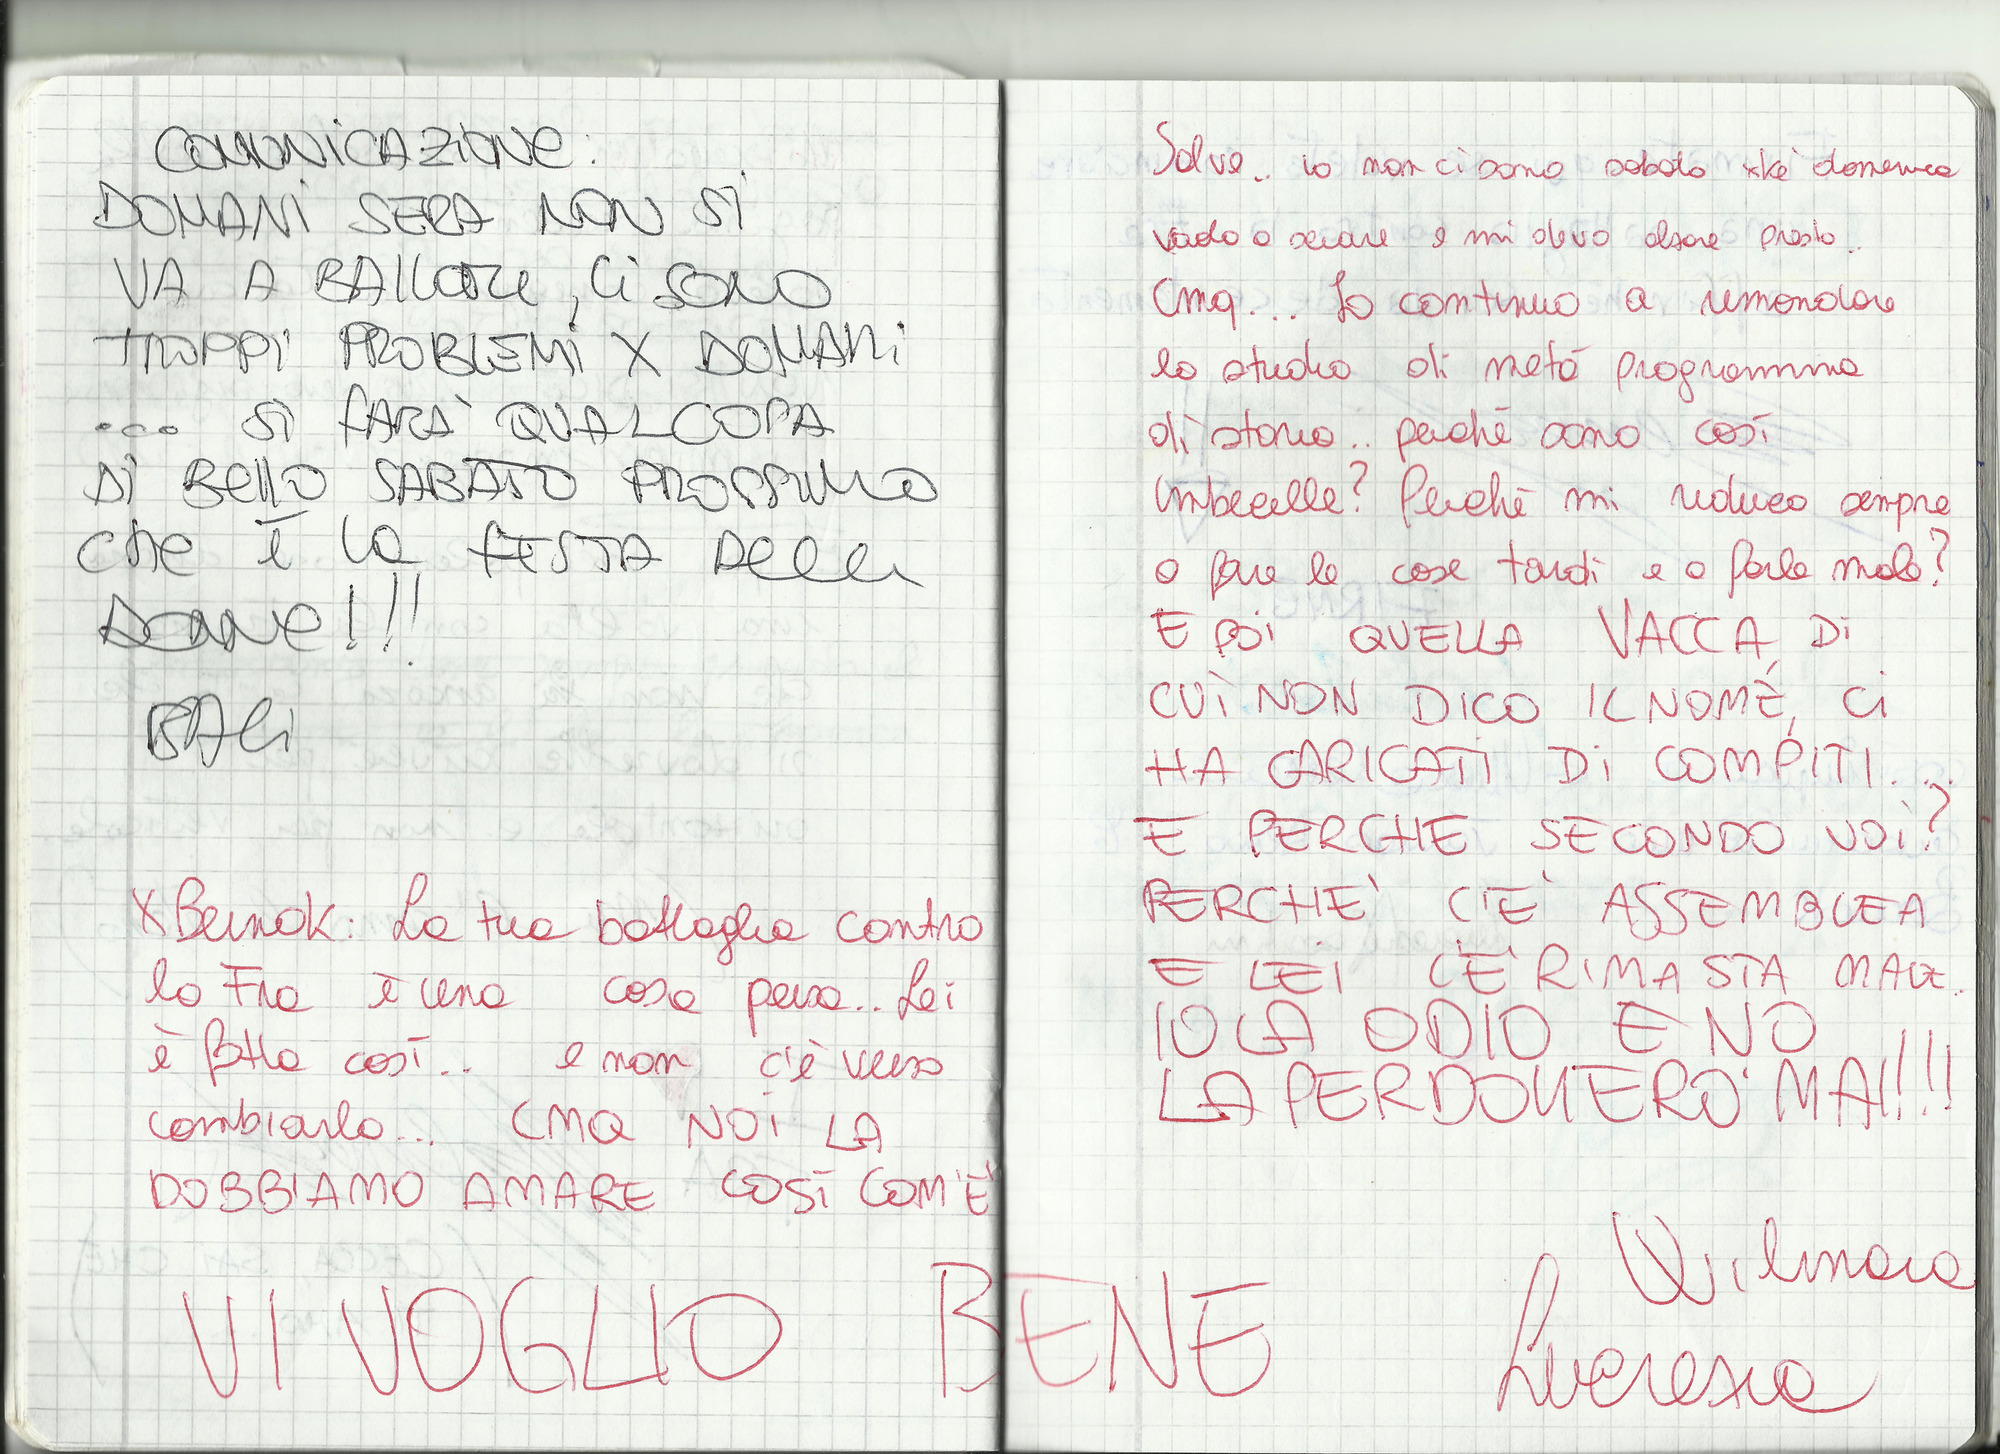 COMUNICAZIONE:
DOMANI SERA NON SI
VA A BALLARE, CI SONO
TROPPI PROBLEMI X DOMANI
... SI FARÀ QUALCOSA
DI BELLO SABATO PROSSIMO
CHE È LA FESTA DELLE
DONNE!!!
BALI
X Beinok: La tua battaglia contro
la Fra è una cosa persa.. Lei
è fatta così... e non c'è verso
cambiarla... CMQ NOI LA
DOBBIAMO AMARE COSÌ COM'È
VI VOGLIO BENE
Salve.. io non ci sono sabato xkè domenica
vado a sciare e mi devo alzare presto..
Cmq... Io continuo a rimandare
lo studio di metà programma
di storia.. perché sono così
imbecille? Perché mi riduco sempre
a fare le cose tardi e a farle male?
E POI QUELLA VACCA, DI
CUI NON DICO IL NOME, CI
HA CARICATI DI COMPITI...
E PERCHE SECONDO VOI?
PERCHE' C'E' ASSEMBLEA
E LEI C'E' RIMASTA MALE.
IO LA ODIO E NO
LA PERDONERO' MAI!!!
Lucrezia